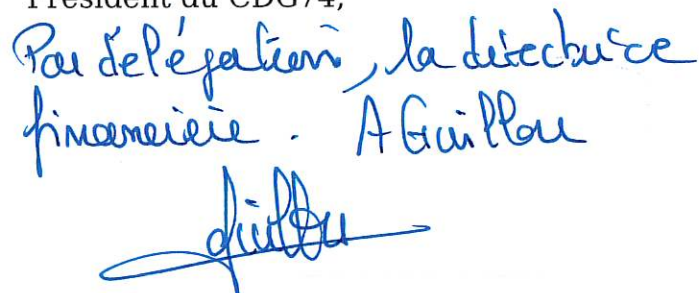 Président du CDG74,
Par délégation, la directrice
financière. A Guillou
Guillou